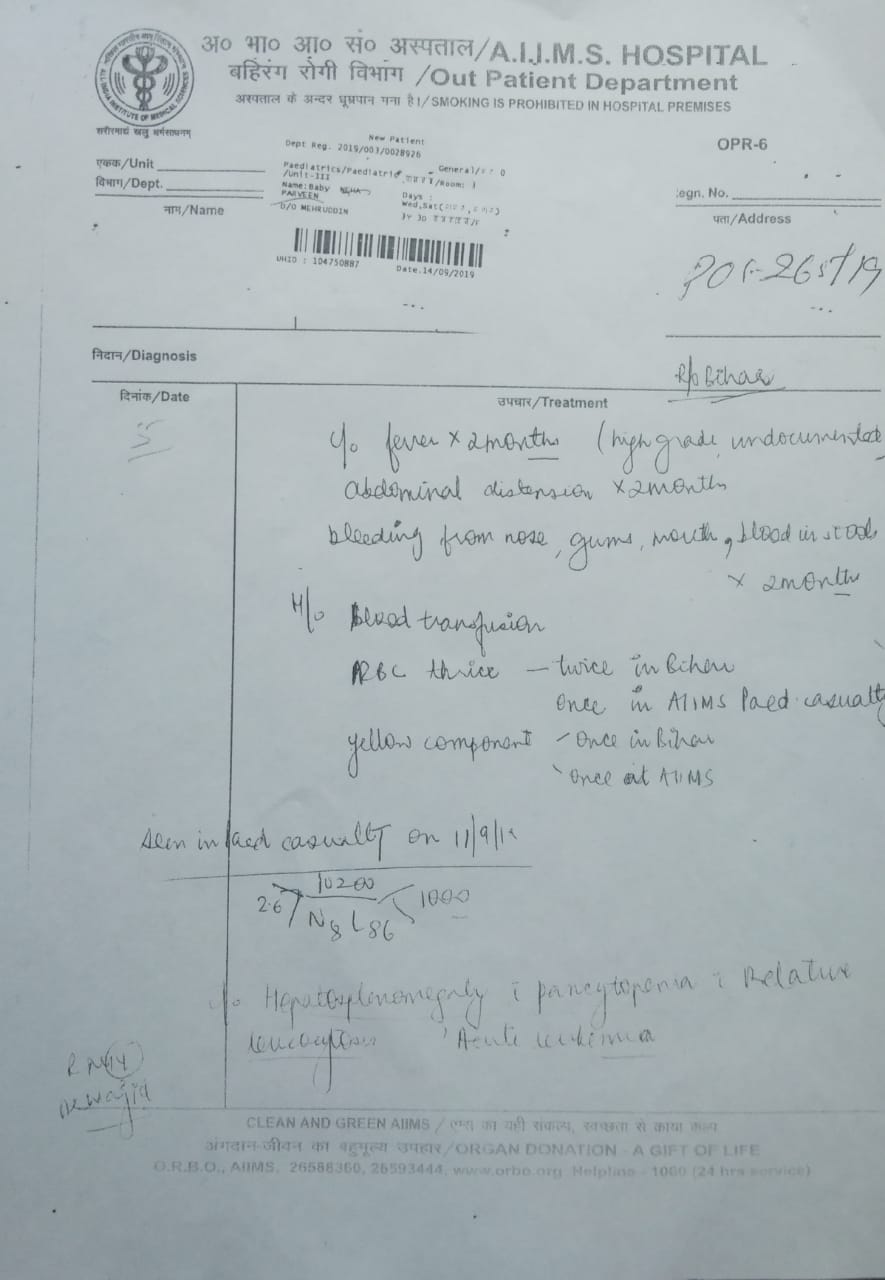 अ० भा० आ० सं० अस्पताल/A.I.I.M.S. HOSPITAL
बहिरंग रोगी विभाग /Out Patient Department
अस्पताल के अन्दर धूम्रपान मना है।/ SMOKING IS PROHIBITED IN HOSPITAL PREMISES
ALL INDIA INSTITUTE OF MEDICAL SCIENCES
New Patient
Dept Reg. 2019/003/0028926
OPR-6
एकक/Unit
Paediatrics/Paediatric General/ 0
/Unit-III /Room:
विभाग/Dept.
Name: Baby NEHA Days :
PARVEEN Wed,Sat
D/O MEHRUDDIN
egn. No.
नाम/Name
पता/Address
UHID : 104750887
Date.14/09/2019
265/19
निदान/Diagnosis
R/o Bihar
दिनांक/Date
उपचार/Treatment
c/o fever x 2 months (high grade, undocumented
abdominal distension x 2 months
bleeding from nose, gums, mouth, blood in stools
x 2 months
H/o Blood transfusion
RBC thrice – twice in Bihar
once in AIIMS Paed. casualty
yellow component – once in Bihar
once at AIIMS
seen in Paed casualty on 11/9/19
2.6 10200 1000
N8 L86
Hepatosplenomegaly c pancytopenia c Relative
leucocytosis Acute leukemia
CLEAN AND GREEN AIIMS / एम्स का यही संकल्प, स्वच्छता से काया कल्प
अंगदान-जीवन का बहुमूल्य उपहार/ORGAN DONATION - A GIFT OF LIFE
O.R.B.O., AIIMS, 26588360, 26593444, www.orbo.org Helpline - 1060 (24 hrs service)